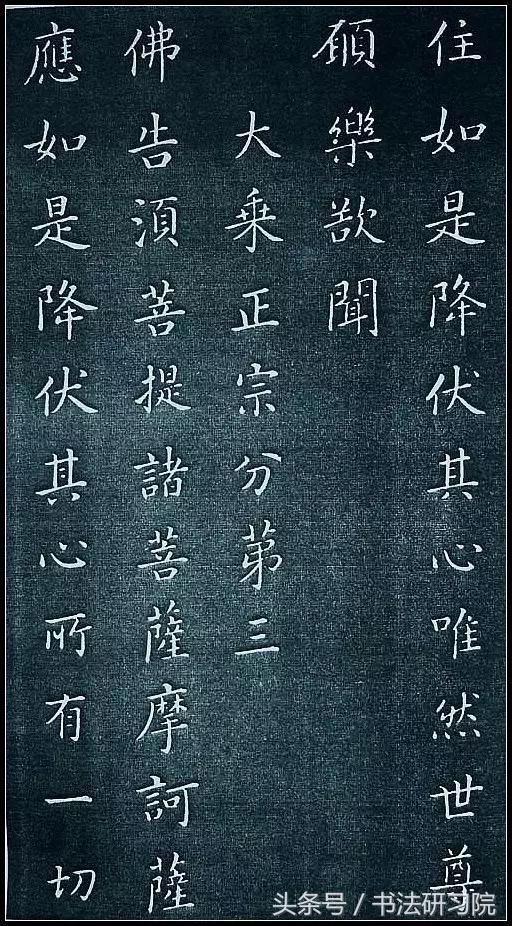 住如是降伏其心唯然世尊
願樂欲聞
大乗正宗分第三
佛告須菩提諸菩薩摩訶薩
應如是降伏其心所有一切
头条号／书法研习院